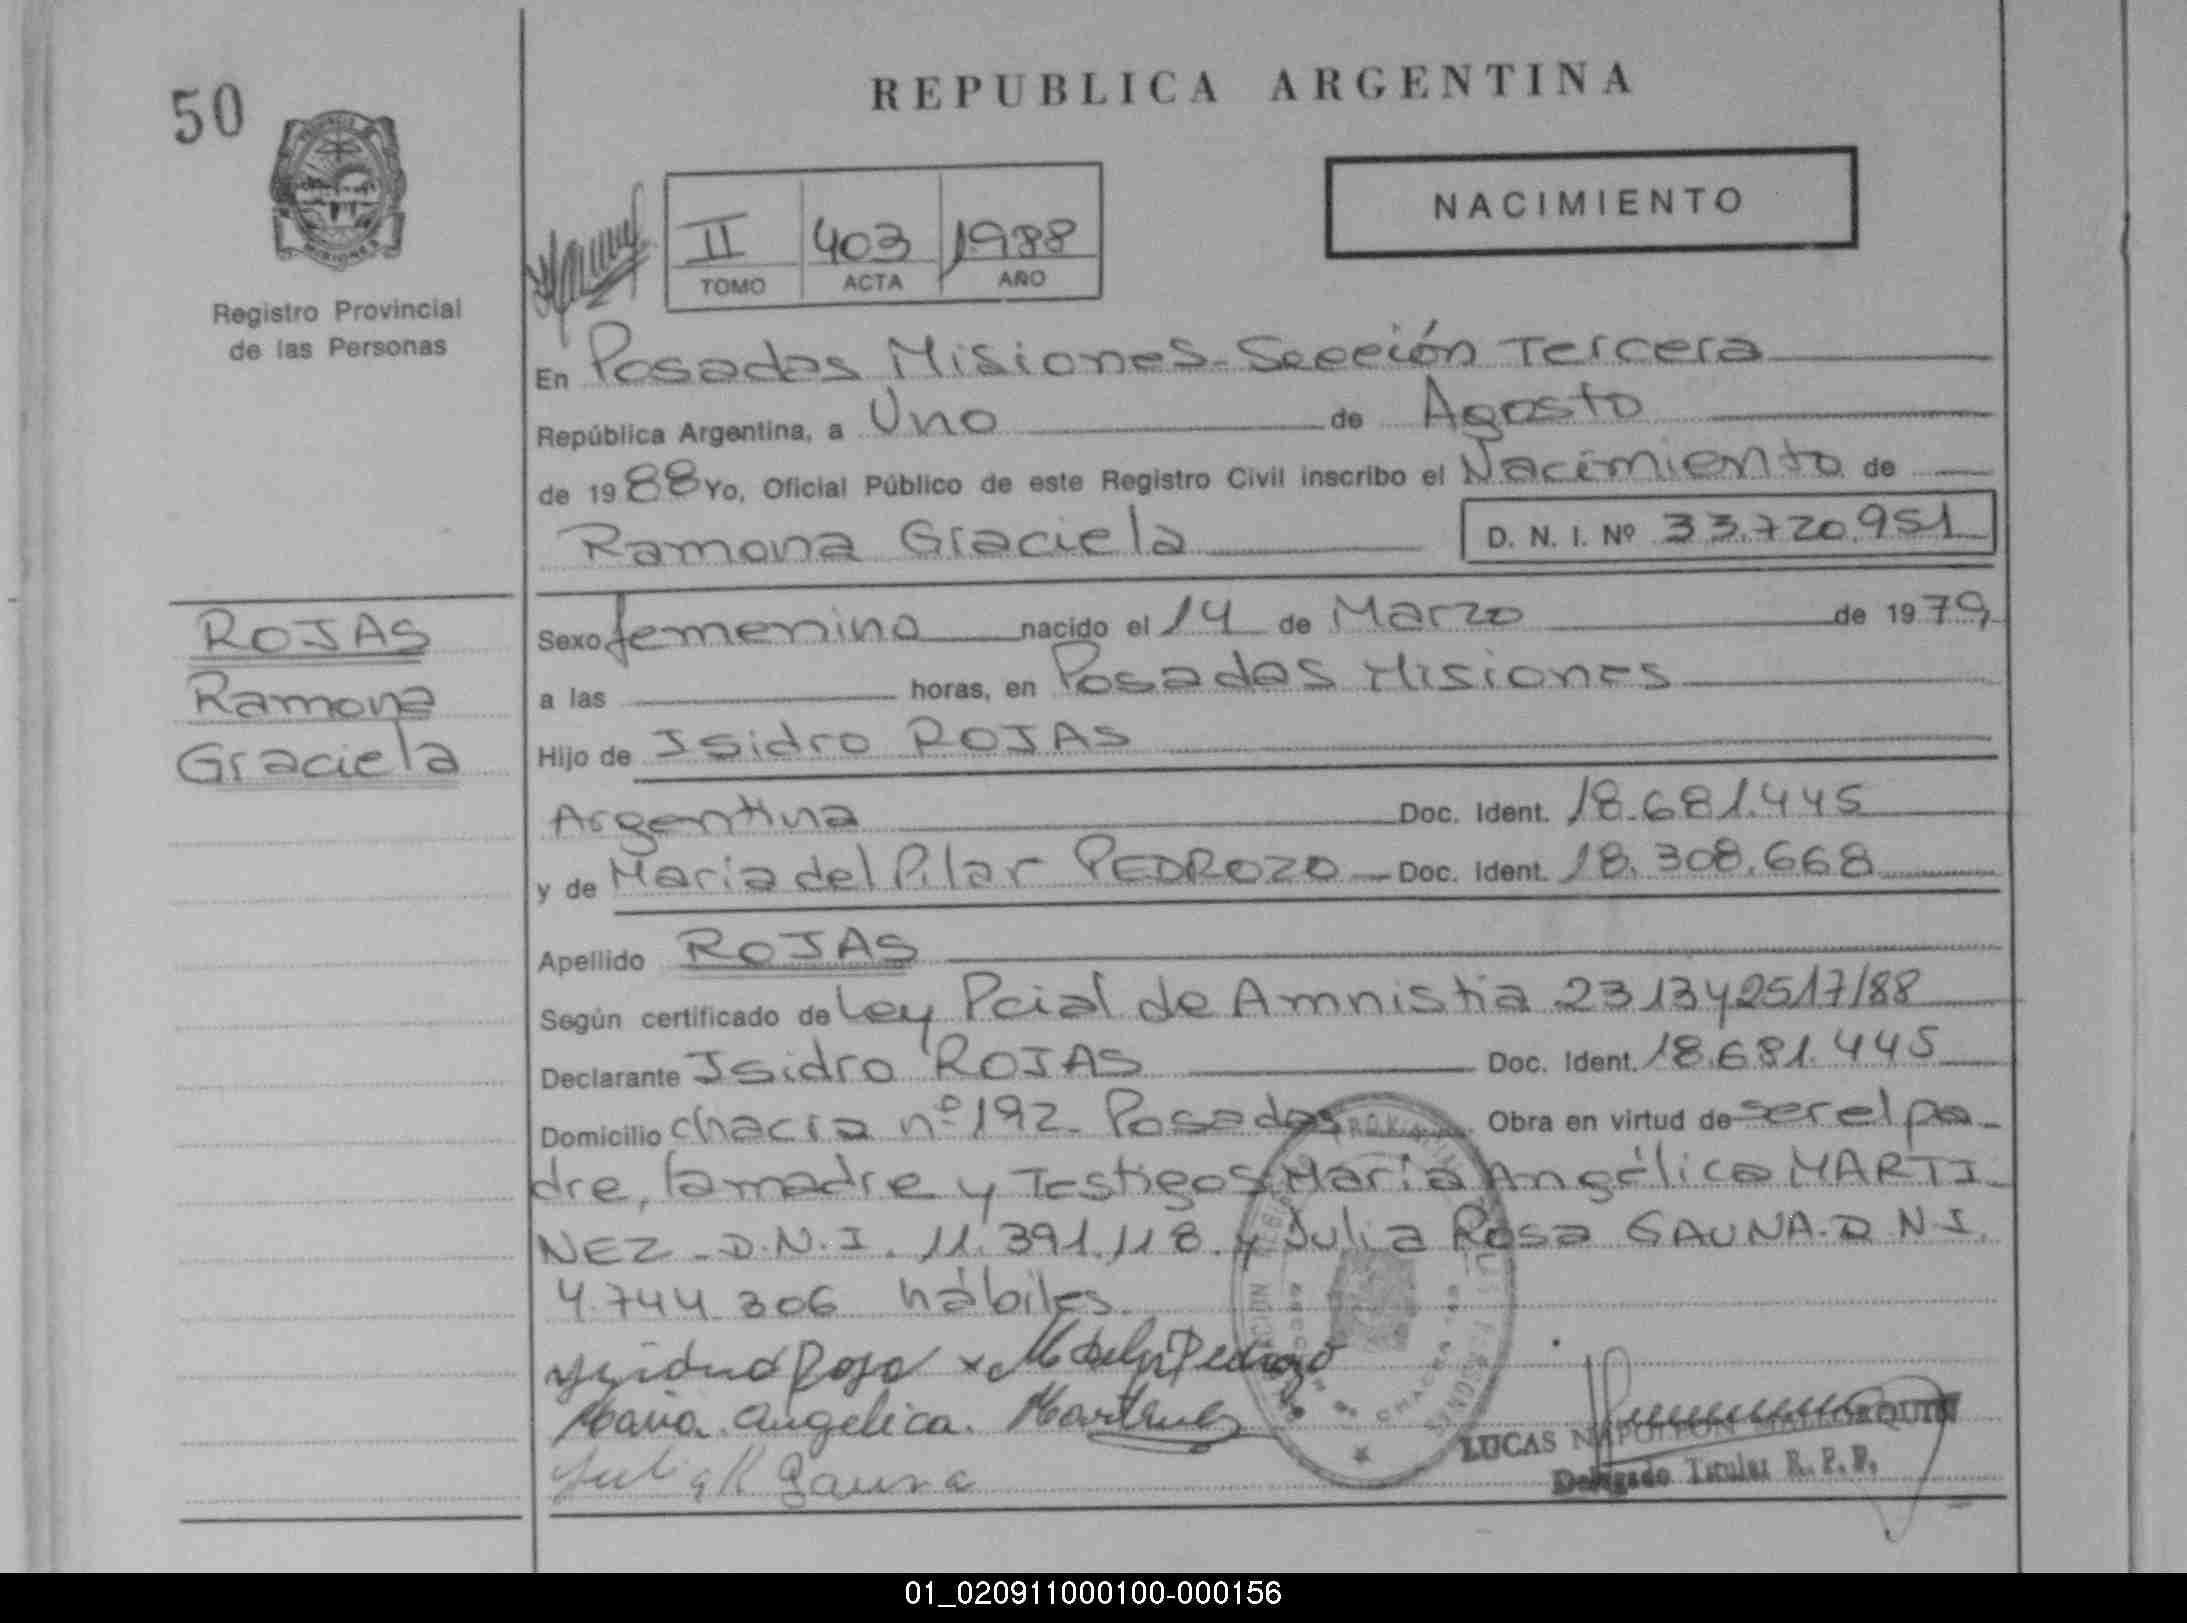 50
REPUBLICA ARGENTINA
NACIMIENTO
II 403 1988
TOMO ACTA AÑO
Registro Provincial
de las Personas
MISIONES
En Posadas Misiones-Sección Tercera
República Argentina, a Uno de Agosto
de 1988 Yo, Oficial Público de este Registro Civil inscribo el Nacimiento de
Ramona Graciela D. N. I. Nº 33.720.951
ROJAS
Ramona
Graciela
Sexo femenino nacido el 14 de Marzo de 1979
a las horas, en Posadas Misiones
Hijo de Isidro ROJAS
Argentina Doc. Ident. 18.681.445
y de Maria del Pilar PEDROZO Doc. Ident. 18.308.668
Apellido ROJAS
Según certificado de Ley Pcial de Amnistia 2313 y 2517/88
Declarante Isidro ROJAS Doc. Ident. 18.681.445
Domicilio chacra nº 192. Posadas Obra en virtud de ser el pa-
dre, la madre y Testigos Maria Angélica MARTI-
NEZ - D.N.I. 11.391.118. y Julia Rosa GAUNA-D.N.I.
4.744.306 hábiles.
Ysidro Rojas x M del Pi Pedrozo
Maria Angelica. Martinez
Julia R Gauna
CHACRA
LUCAS NAPOLEON
Delegado Titular R. P. P.
01_020911000100-000156